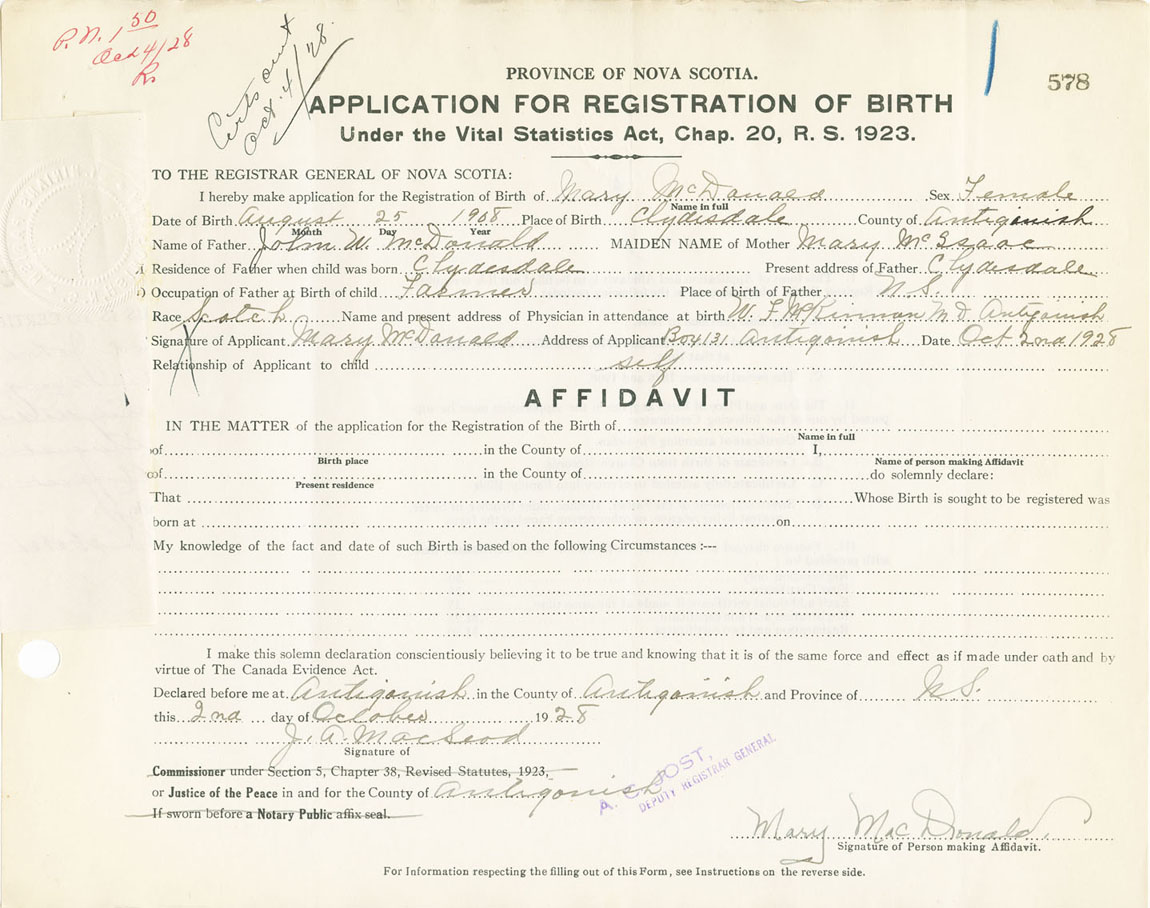 P.N. 1 50
Oct 4/28
R.
Certs out
Oct. 4/28
PROVINCE OF NOVA SCOTIA.
578
APPLICATION FOR REGISTRATION OF BIRTH
Under the Vital Statistics Act, Chap. 20, R. S. 1923.
TO THE REGISTRAR GENERAL OF NOVA SCOTIA:
I hereby make application for the Registration of Birth of Mary McDonald Sex Female
Name in full
Date of Birth August 25 1908 Place of Birth Clydesdale County of Antigonish
Month Day Year
Name of Father John W. McDonald MAIDEN NAME of Mother Mary McIsaac
Residence of Father when child was born Clydesdale Present address of Father Clydesdale
Occupation of Father at Birth of child Farmer Place of birth of Father N.S.
Race Scotch Name and present address of Physician in attendance at birth W. F. McKinnon M.D. Antigonish
Signature of Applicant Mary McDonald Address of Applicant Box 131 Antigonish Date Oct 2nd 1928
Relationship of Applicant to child self
AFFIDAVIT
IN THE MATTER of the application for the Registration of the Birth of
Name in full
of in the County of I,
Birth place Name of person making Affidavit
of in the County of do solemnly declare:
Present residence
That Whose Birth is sought to be registered was
born at on
My knowledge of the fact and date of such Birth is based on the following Circumstances :---
I make this solemn declaration conscientiously believing it to be true and knowing that it is of the same force and effect as if made under oath and by
virtue of The Canada Evidence Act.
Declared before me at Antigonish in the County of Antigonish and Province of N.S.
this 2nd day of October 1928
J. A. MacLeod
Signature of
Commissioner under Section 5, Chapter 38, Revised Statutes, 1923,
or Justice of the Peace in and for the County of Antigonish
If sworn before a Notary Public affix seal.
A. C. JOST,
DEPUTY REGISTRAR GENERAL
Mary MacDonald
Signature of Person making Affidavit.
For Information respecting the filling out of this Form, see Instructions on the reverse side.